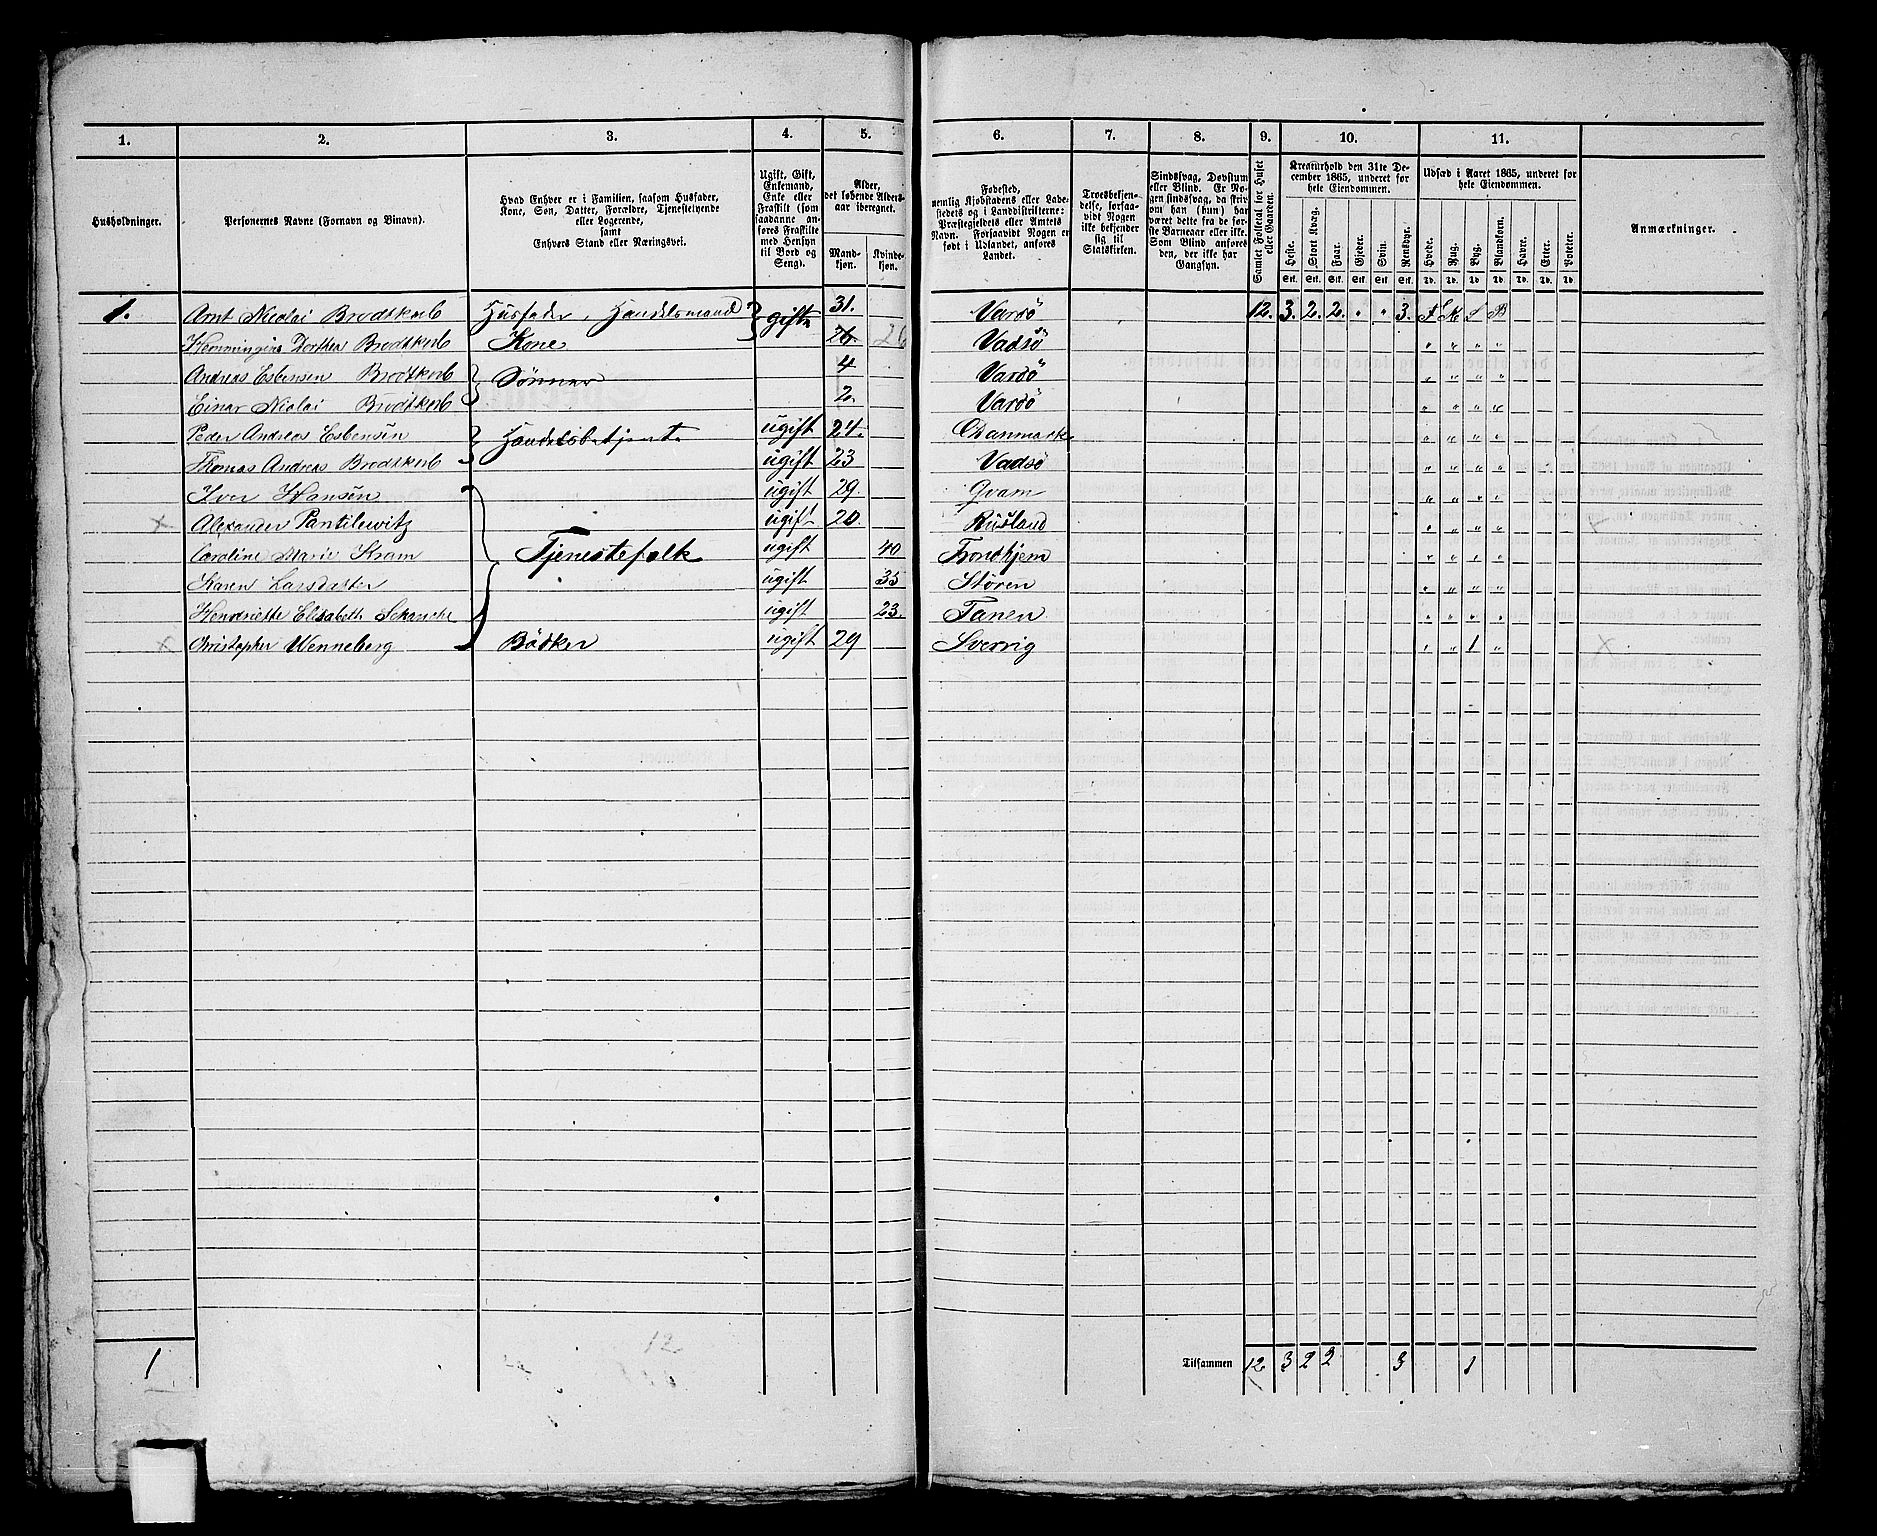 1. 2. 3. 4. 5. 6. 7. 8. 9. 10. 11.
Husholdninger.
Personernes Navne (Fornavn og Binavn).
Hvad Enhver er i Familien, saasom Husfader,
Kone, Søn, Datter, Forældre, Tjenestetyende
eller Logerende,
samt
Enhvers Stand eller Næringsvei.
Ugift, Gift,
Enkemand,
Enke eller
Fraskilt (som
saadanne an-
føres Fraskilte
med Hensyn
til Bord og
Seng).
Alder,
det løbende Alders-
aar iberegnet.
Mand-
kjøn.
Kvinde-
kjøn.
Fødested,
nemlig Kjøbstadens eller Lade-
stedets og i Landdistrikterne:
Præstegjeldets eller Amtets
Navn. Forsaavidt Nogen er
født i Udlandet, anføres
Landet.
Troesbekjen-
delse, forsaa-
vidt Nogen
ikke bekjender
sig til
Statskirken.
Sindssvag, Døvstum
eller Blind. Er No-
gen sindssvag, da skriv
om han (hun) har
været dette fra de før-
ste Barneaar eller ikke.
Som Blind anføres
den, der ikke har
Gangsyn.
Samlet Folketal for Huset
eller Gaarden.
Kreaturhold den 31te De-
cember 1865, underet for
hele Eiendommen.
Heste. Stort Kvæg. Faar. Gjeder. Svin. Rensdyr.
Stk. Stk. Stk. Stk. Stk. Stk.
Udsæd i Aaret 1865, underet for
hele Eiendommen.
Hvede. Rug. Byg. Blandkorn. Havre. Erter. Poteter.
Td. Td. Td. Td. Td. Td. Td.
Anmærkninger.
1. Arnt Nicolai Brodtkorb Husfader, Handelsmand gifte 31. Vardö 12. 3. 2. 2. " " 3.
Hemmingine Dorthea Brodtkorb Kone 26 26 Vadsö
Andreas Esbensen Brodtkorb Sönner 4 Vardö
Einar Nicolai Brodtkorb 2. Vardö
Peder Andreas Esbensen Handelsbetjente ugift 24. Danmark
Thomas Andreas Brodtkorb ugift 23 Vadsö
Iver Hansen ugift 29. Qvam
Alexander Pantilewitz ugift 20. Rusland
Caroline Marie Kram Tjenestefolk ugift 40 Trondhjem
Karen Larsdatter ugift 35 Stören
Henriette Elisabeth Schanche ugift 23. Tanen
Christopher Wenneberg Bödker ugift 29 Sverrig 1
12
1 Tilsammen 12 3 2 2 3 1